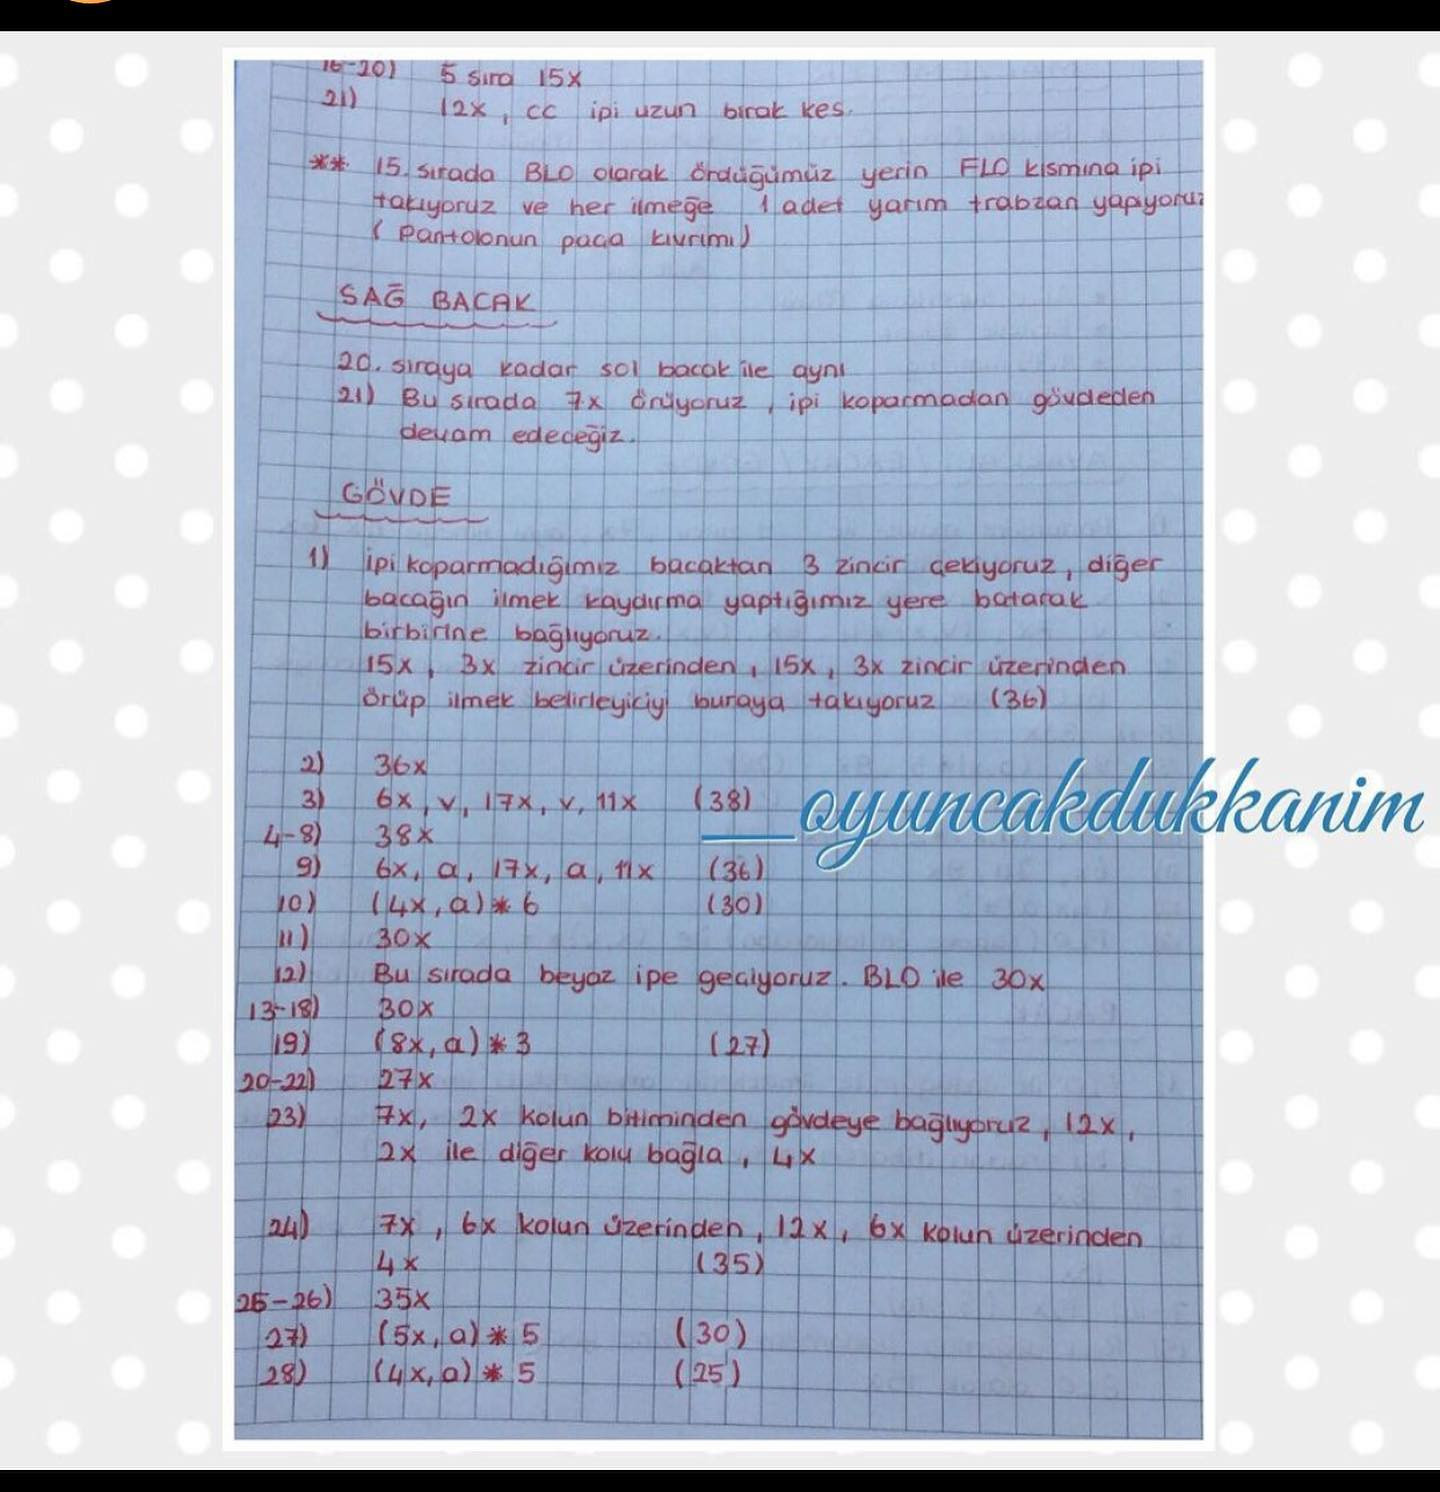 16-20) 5 sıra 15x
21) 12x, cc ipi uzun bırak kes.
** 15. sırada BLO olarak ördüğümüz yerin FLO kısmına ipi
takıyoruz ve her ilmeğe 1 adet yarım trabzan yapıyoruz
(Pantolonun paça kıvrımı)
SAĞ BACAK
20. sıraya kadar sol bacak ile aynı
21) Bu sırada 7x örüyoruz, ipi koparmadan gövdeden
devam edeceğiz.
GÖVDE
1) İpi koparmadığımız bacaktan 3 zincir çekiyoruz, diğer
bacağın ilmek kaydırma yaptığımız yere batarak
birbirine bağlıyoruz.
15x, 3x zincir üzerinden, 15x, 3x zincir üzerinden
örüp ilmek belirleyiciyi buraya takıyoruz (36)
2) 36x
3) 6x, v, 17x, v, 11x (38)
__oyuncakdukkanim
4-8) 38x
9) 6x, a, 17x, a, 11x (36)
10) (4x, a) * 6 (30)
11) 30x
12) Bu sırada beyaz ipe geçiyoruz. BLO ile 30x
13-18) 30x
19) (8x, a) * 3 (27)
20-22) 27x
23) 7x, 2x kolun bitiminden gövdeye bağlıyoruz, 12x,
2x ile diğer kolu bağla, 4x
24) 7x, 6x kolun üzerinden, 12x, 6x kolun üzerinden
4x (35)
25-26) 35x
27) (5x, a) * 5 (30)
28) (4x, a) * 5 (25)